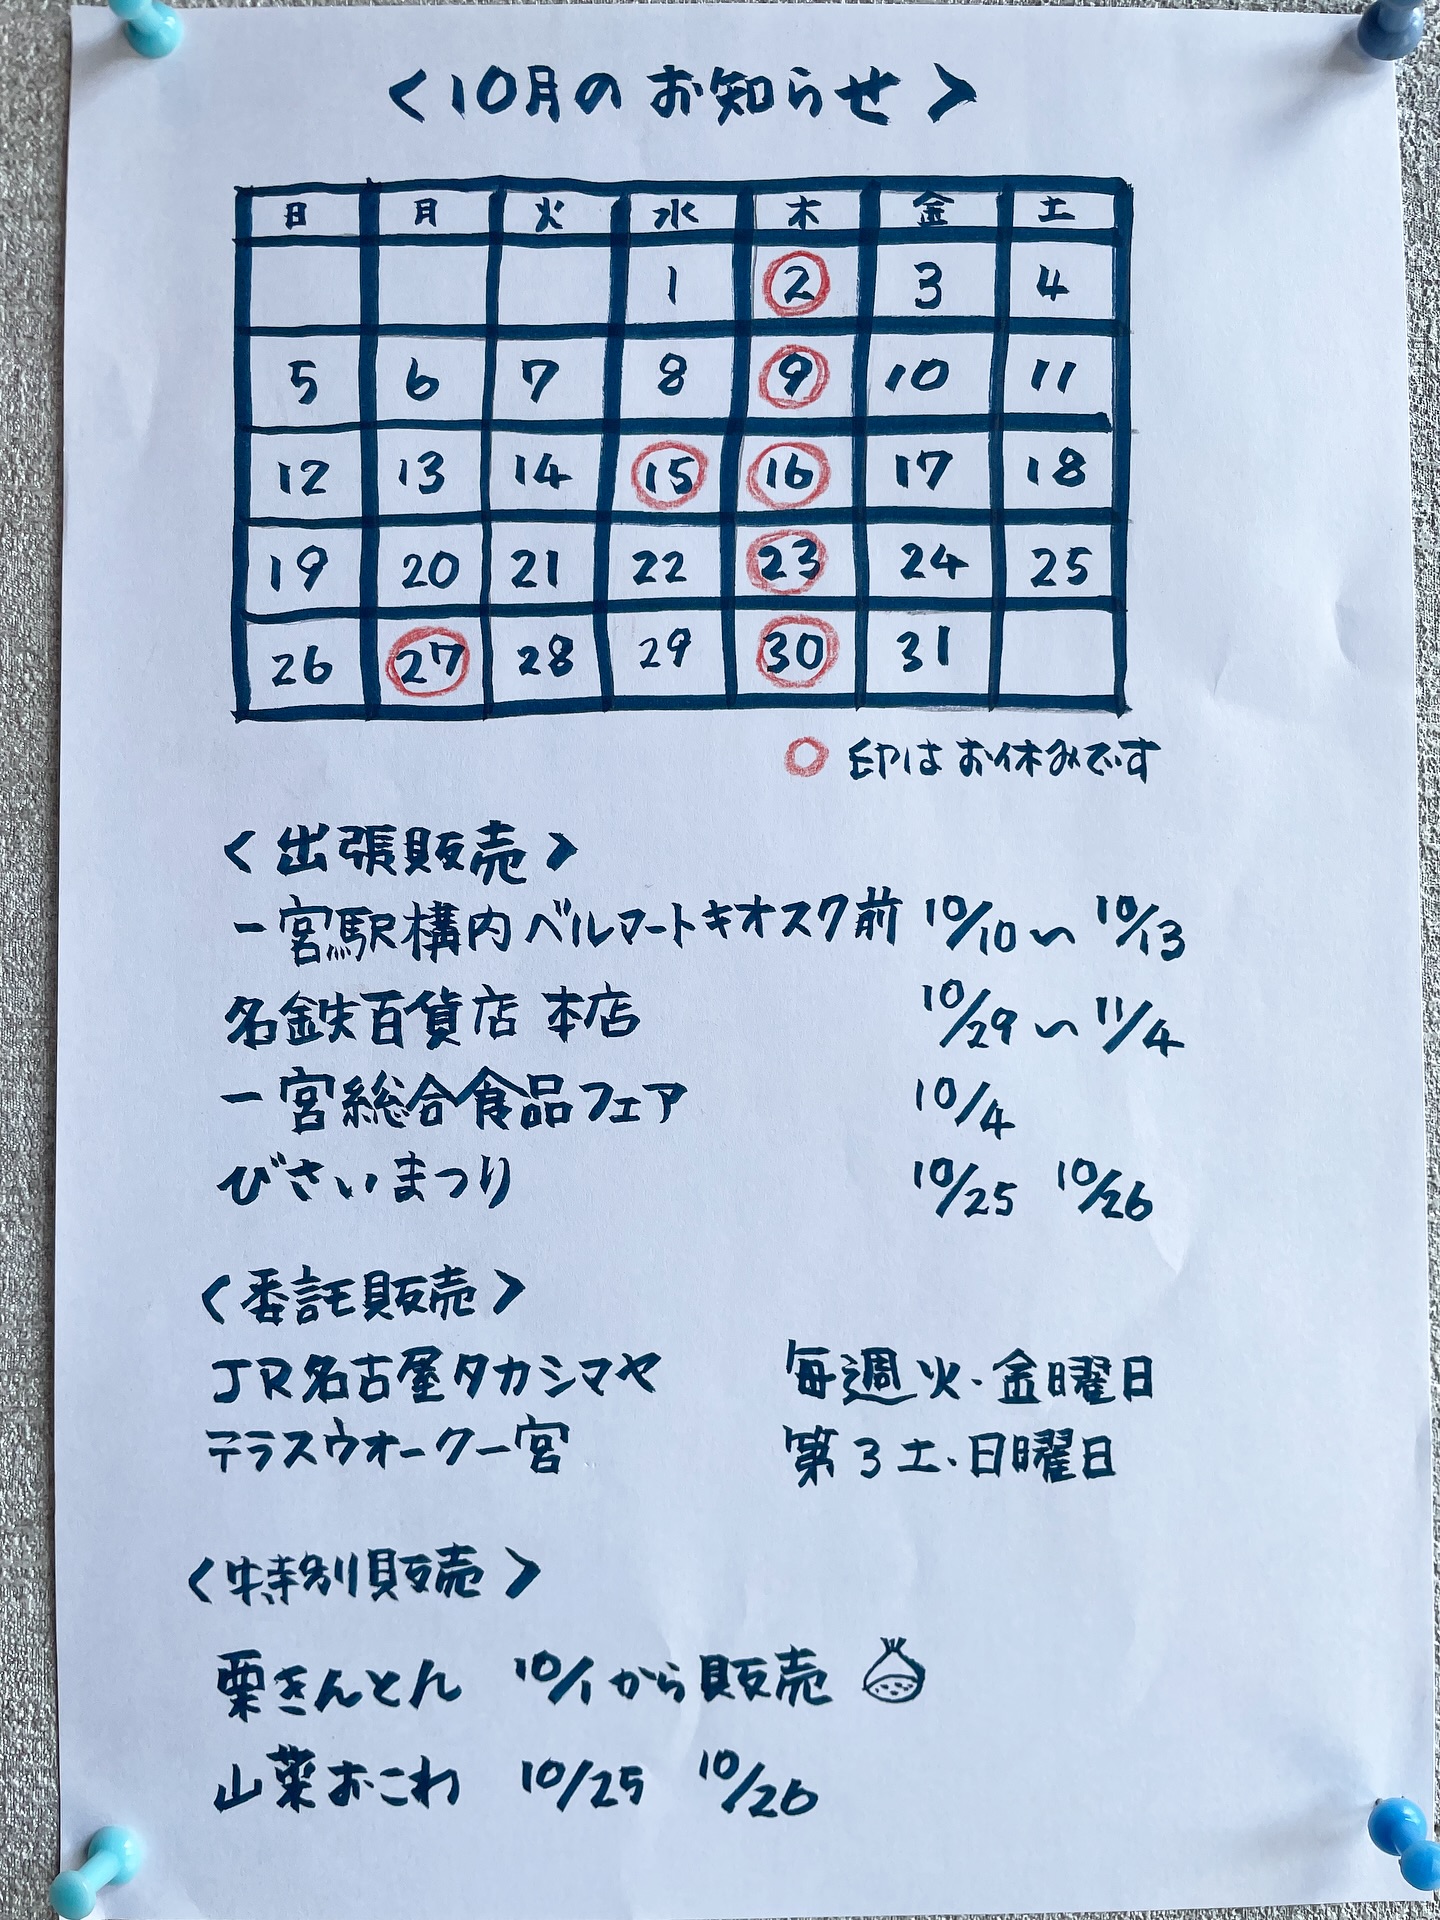 〈10月のお知らせ〉
日 月 火 水 木 金 土
1 2 3 4
5 6 7 8 9 10 11
12 13 14 15 16 17 18
19 20 21 22 23 24 25
26 27 28 29 30 31
○印はお休みです
〈出張販売〉
一宮駅構内ベルマートキオスク前 10/10〜10/13
名鉄百貨店 本店 10/29〜11/4
一宮総合食品フェア 10/4
びさいまつり 10/25 10/26
〈委託販売〉
JR名古屋タカシマヤ 毎週火・金曜日
テラスウォーク一宮 第3土、日曜日
〈特別販売〉
栗きんとん 10/1から販売
山菜おこわ 10/25 10/26